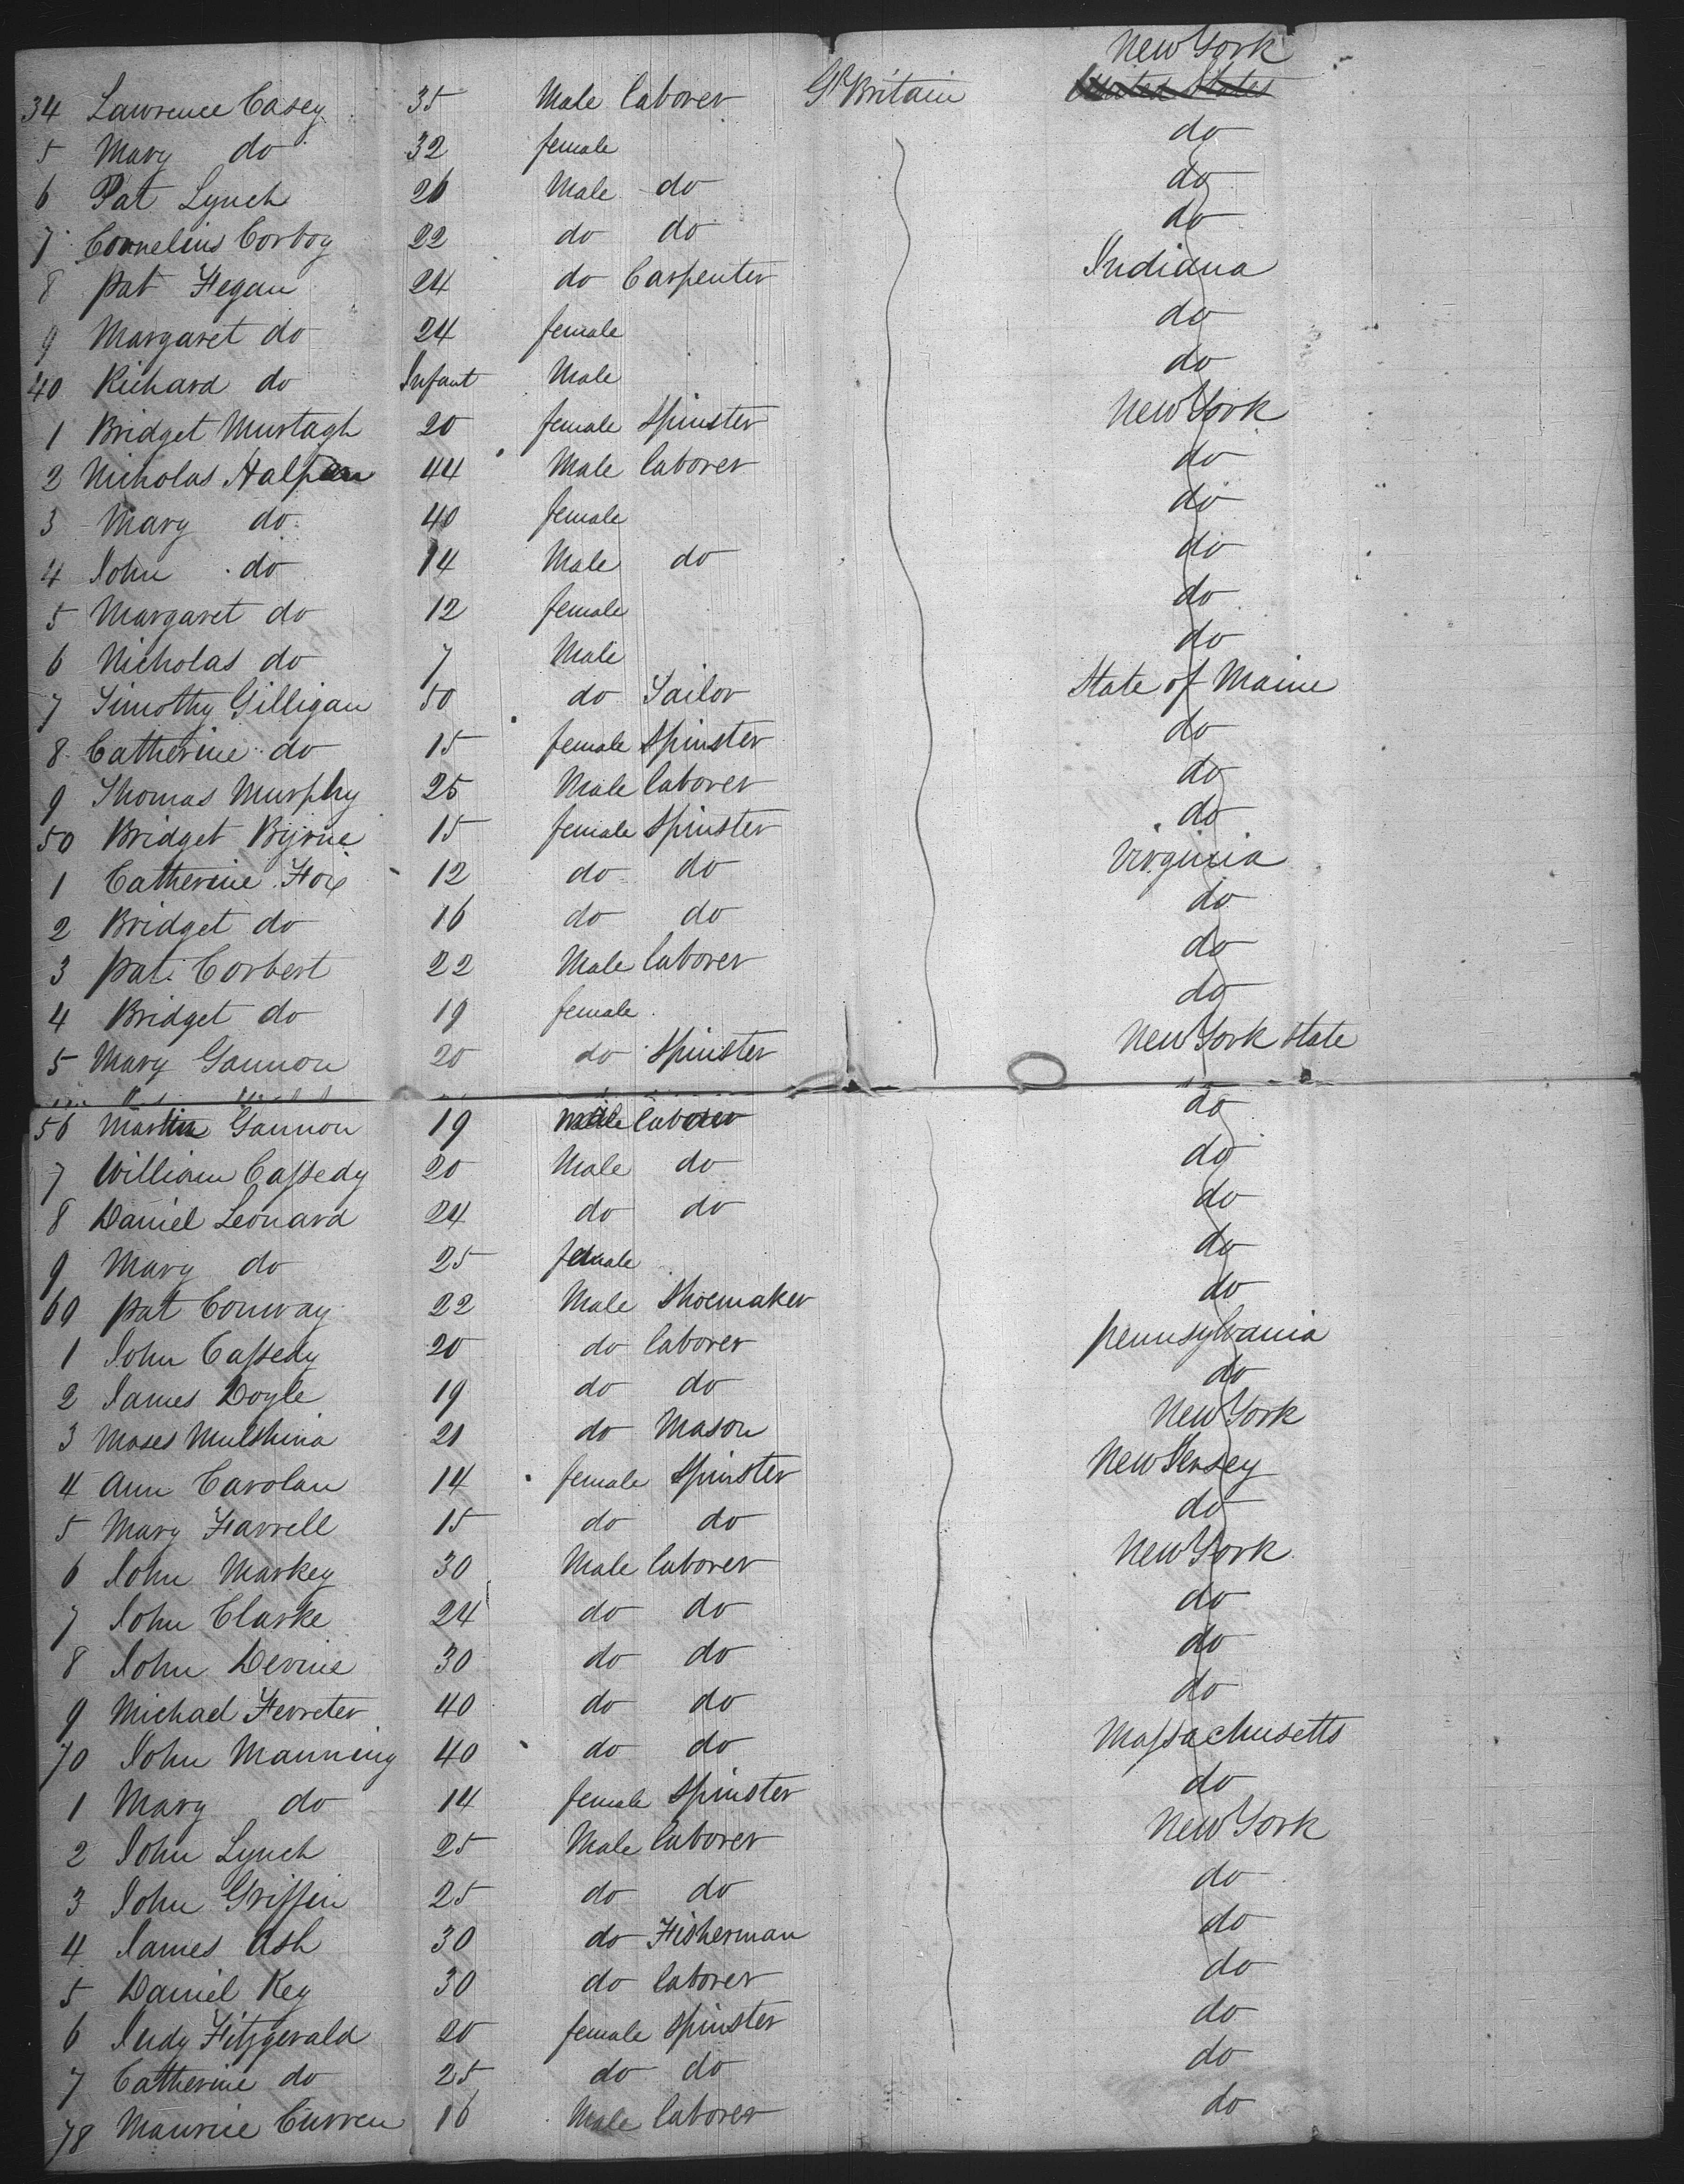 New York
34 Lawrence Casey 35 Male laborer Gt Britain United States
5 Mary do 32 female do
6 Pat Lynch 26 Male do do
7 Cornelius Corboy 22 do do do
8 Pat Fegan 24 do Carpenter Indiana
9 Margaret do 24 female do
40 Richard do Infant Male do
1 Bridget Murtagh 20 female Spinster New York
2 Nicholas Halpen 44 Male laborer do
3 Mary do 40 female do
4 John do 14 Male do do
5 Margaret do 12 female do
6 Nicholas do 7 Male do
7 Timothy Gilligan 50 do Tailor State of Maine
8 Catherine do 15 female Spinster do
9 Thomas Murphy 25 Male laborer do
50 Bridget Byrne 15 female Spinster do
1 Catherine Fox 12 do do Virginia
2 Bridget do 16 do do do
3 Pat Corbert 22 Male laborer do
4 Bridget do 19 female do
5 Mary Gannon 20 do Spinster New York State
56 Martin Gannon 19 male laborer do
7 William Cassedy 20 Male do do
8 Daniel Leonard 24 do do do
9 Mary do 25 female do
60 Pat Conway 22 Male Shoemaker do
1 John Cassedy 20 do laborer Pennsylvania
2 James Doyle 19 do do do
3 Moses Mulshina 21 do Mason New York
4 Ann Carolan 14 female Spinster New Jersey
5 Mary Farrell 15 do do do
6 John Markey 30 Male laborer New York
7 John Clarke 24 do do do
8 John Devine 30 do do do
9 Michael Ferreter 40 do do do
70 John Manning 40 do do Massachusetts
1 Mary do 14 female Spinster do
2 John Lynch 25 Male laborer New York
3 John Griffin 25 do do do
4 James Ash 30 do Fisherman do
5 Daniel Key 30 do laborer do
6 Judy Fitzgerald 20 female Spinster do
7 Catherine do 25 do do do
78 Maurice Curren 16 Male laborer do